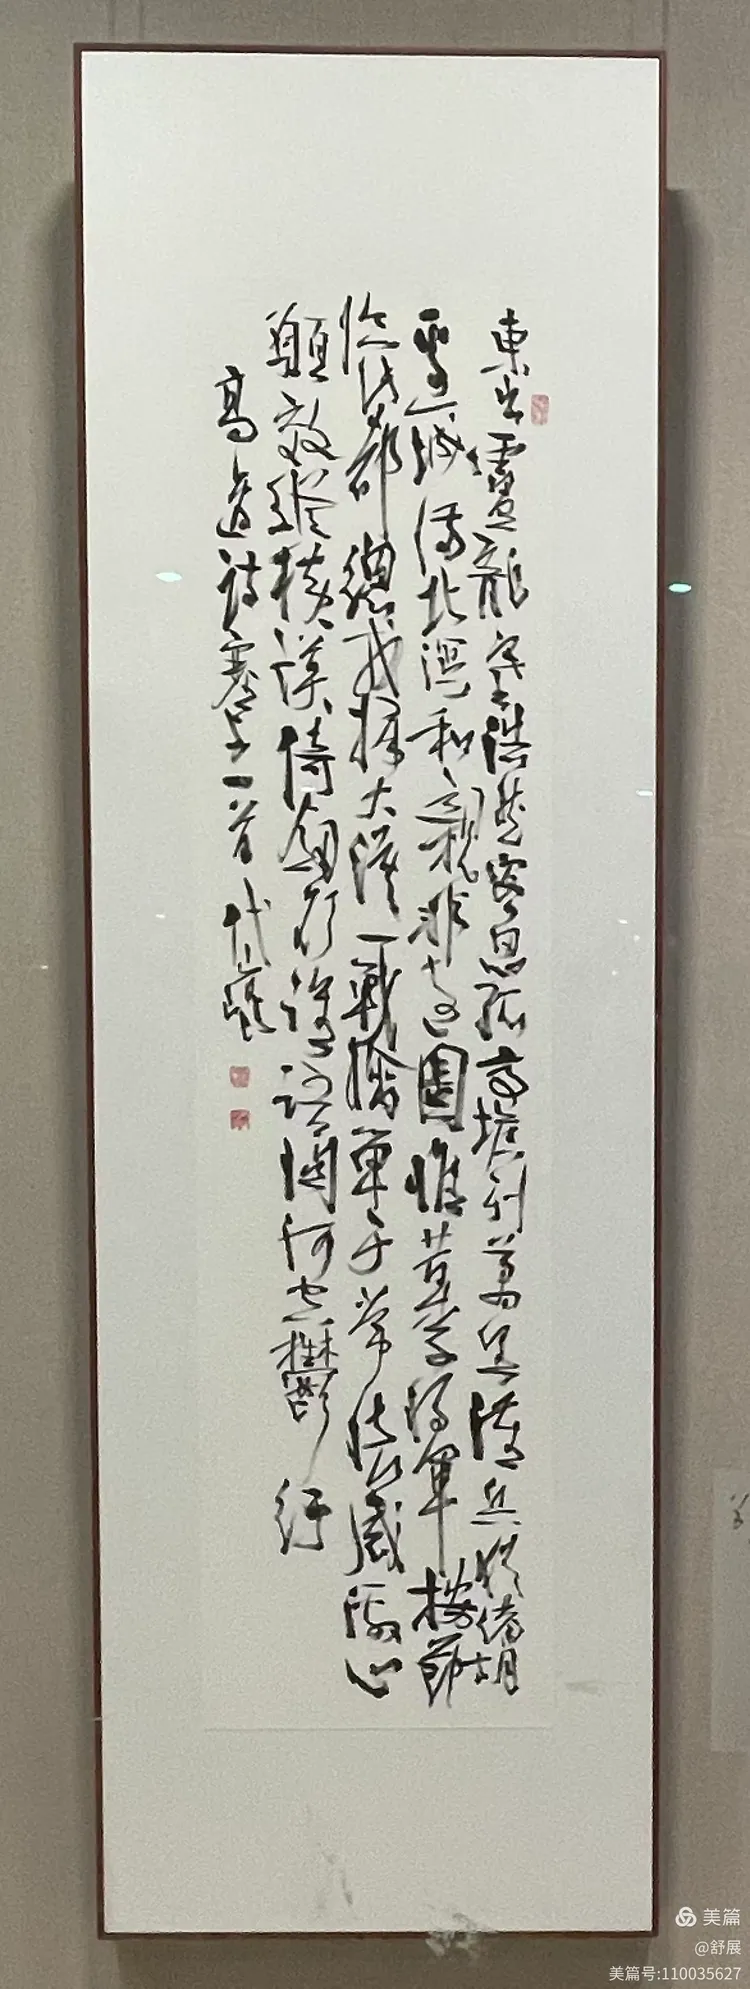 東出盧龍塞浩然客思孤亭堠列萬里漢兵猶備胡
邊城滿北溟和親非遠圖惟昔李將軍按節
臨此都總戎掃大漠一戰擒單于常懷感激心
願效縱橫謨倚劍欲誰語關河空鬱紆
高適詩塞上一首
美篇
@舒展
美篇号:110035627